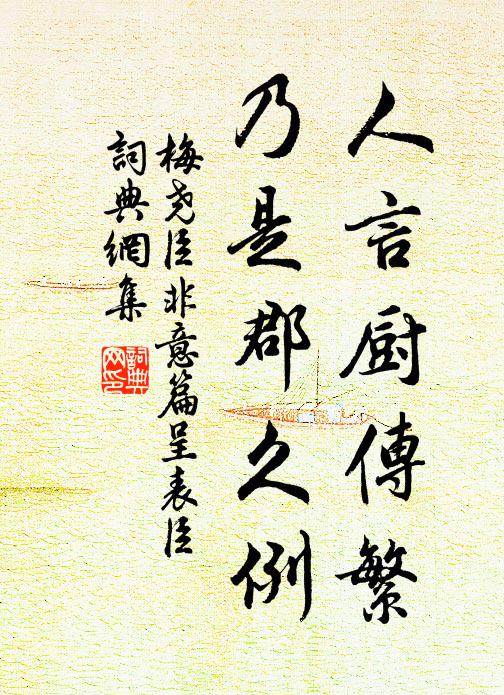 人言厨傳繁
乃是郡久例
梅尧臣非意篇呈表臣
詞典網集
詞典网印